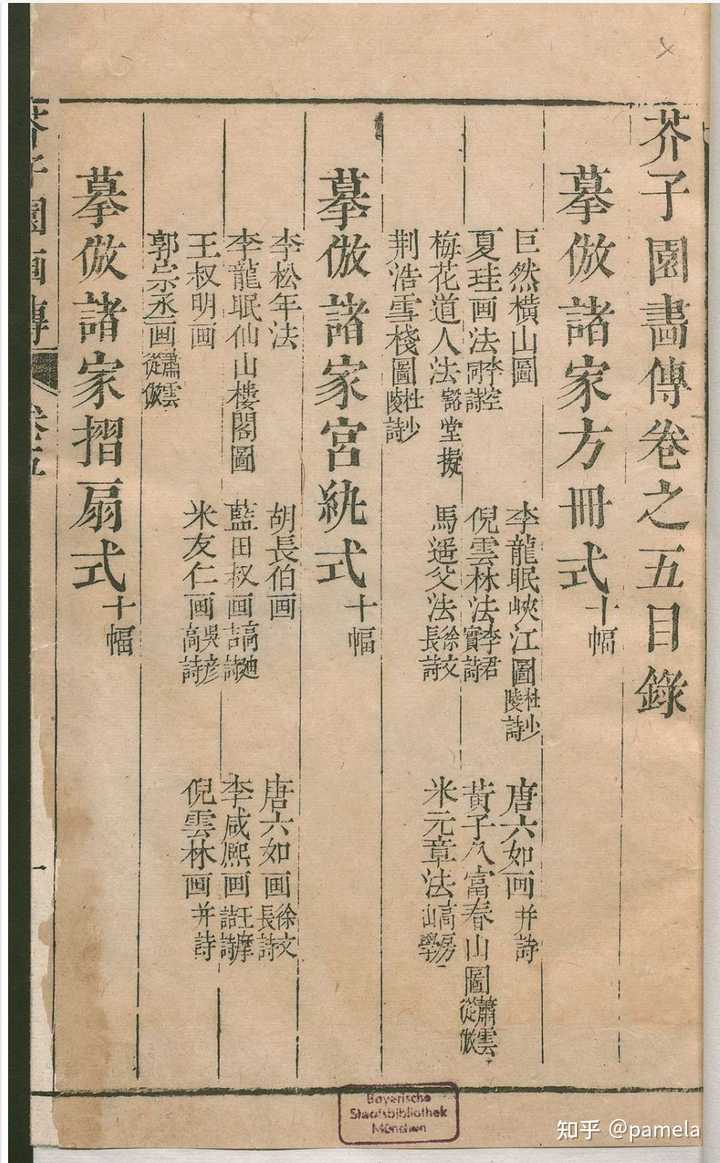 芥子園畵傳卷之五目錄
摹倣諸家方冊式十幅
巨然横山圖 李龍眠峽江圖杜少陵詩 唐六如画并詩
夏珪画法李空同詩 倪雲林法李君實詩 黃子久富春山圖蕭雲從倣
梅花道人法豁堂擬 馬遥父法徐文長詩 米元章法高房山學
荆浩雪棧圖杜少陵詩
摹倣諸家宮紈式十幅
李松年法 胡長伯画 唐六如画徐文長詩
李龍眠仙山樓閣圖 藍田叔画高廸吉詩 李咸熈画王摩詰詩
王叔明画 米友仁画吳彥高詩 倪雲林画并詩
郭宗丞画蕭雲從倣
摹倣諸家摺扇式十幅
芥子園画傳 卷五 一
Bayerische
Staatsbibliothek
München
知乎 @pamela